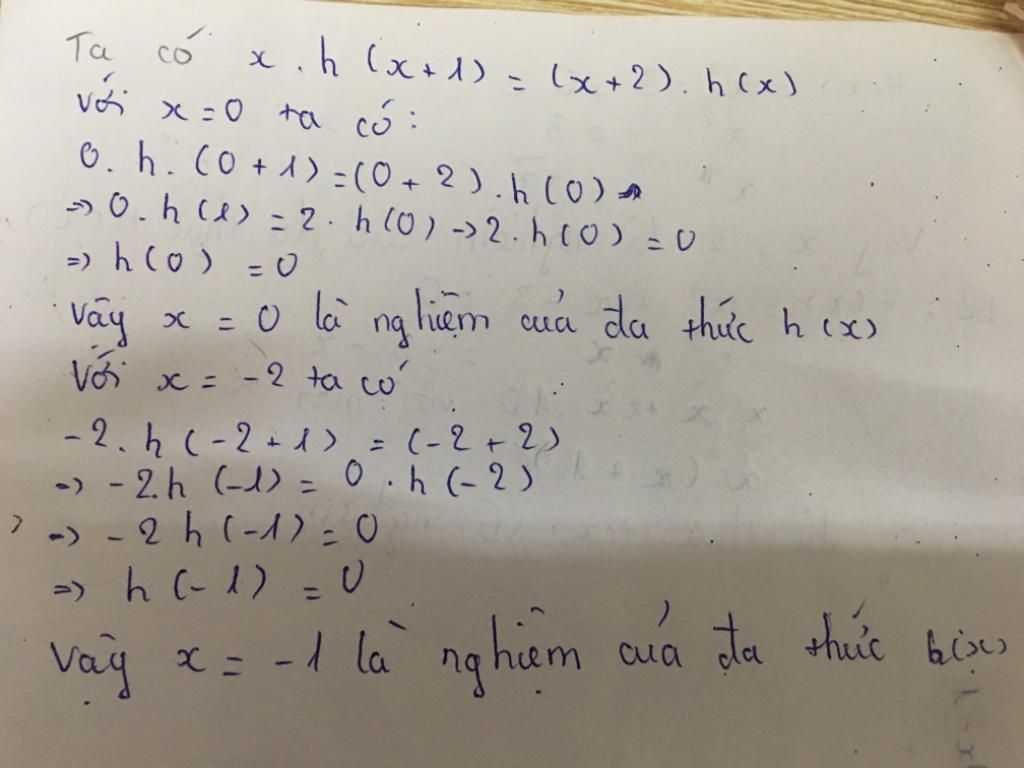 Ta có x . h (x+1) = (x+2) . h(x)
với x=0 ta có:
0. h. (0+1)=(0+2).h(0)
=> 0.h(1) = 2. h(0) → 2. h(0) = 0
=> h(0) = 0
Vậy x = 0 là nghiệm của đa thức h(x)
Với x = -2 ta có
-2. h (-2+1) = (-2+2)
=> -2.h (-1) = 0 . h(-2)
=> -2 h (-1) = 0
=> h (-1) = 0
Vậy x = -1 là nghiệm của đa thức h(x)